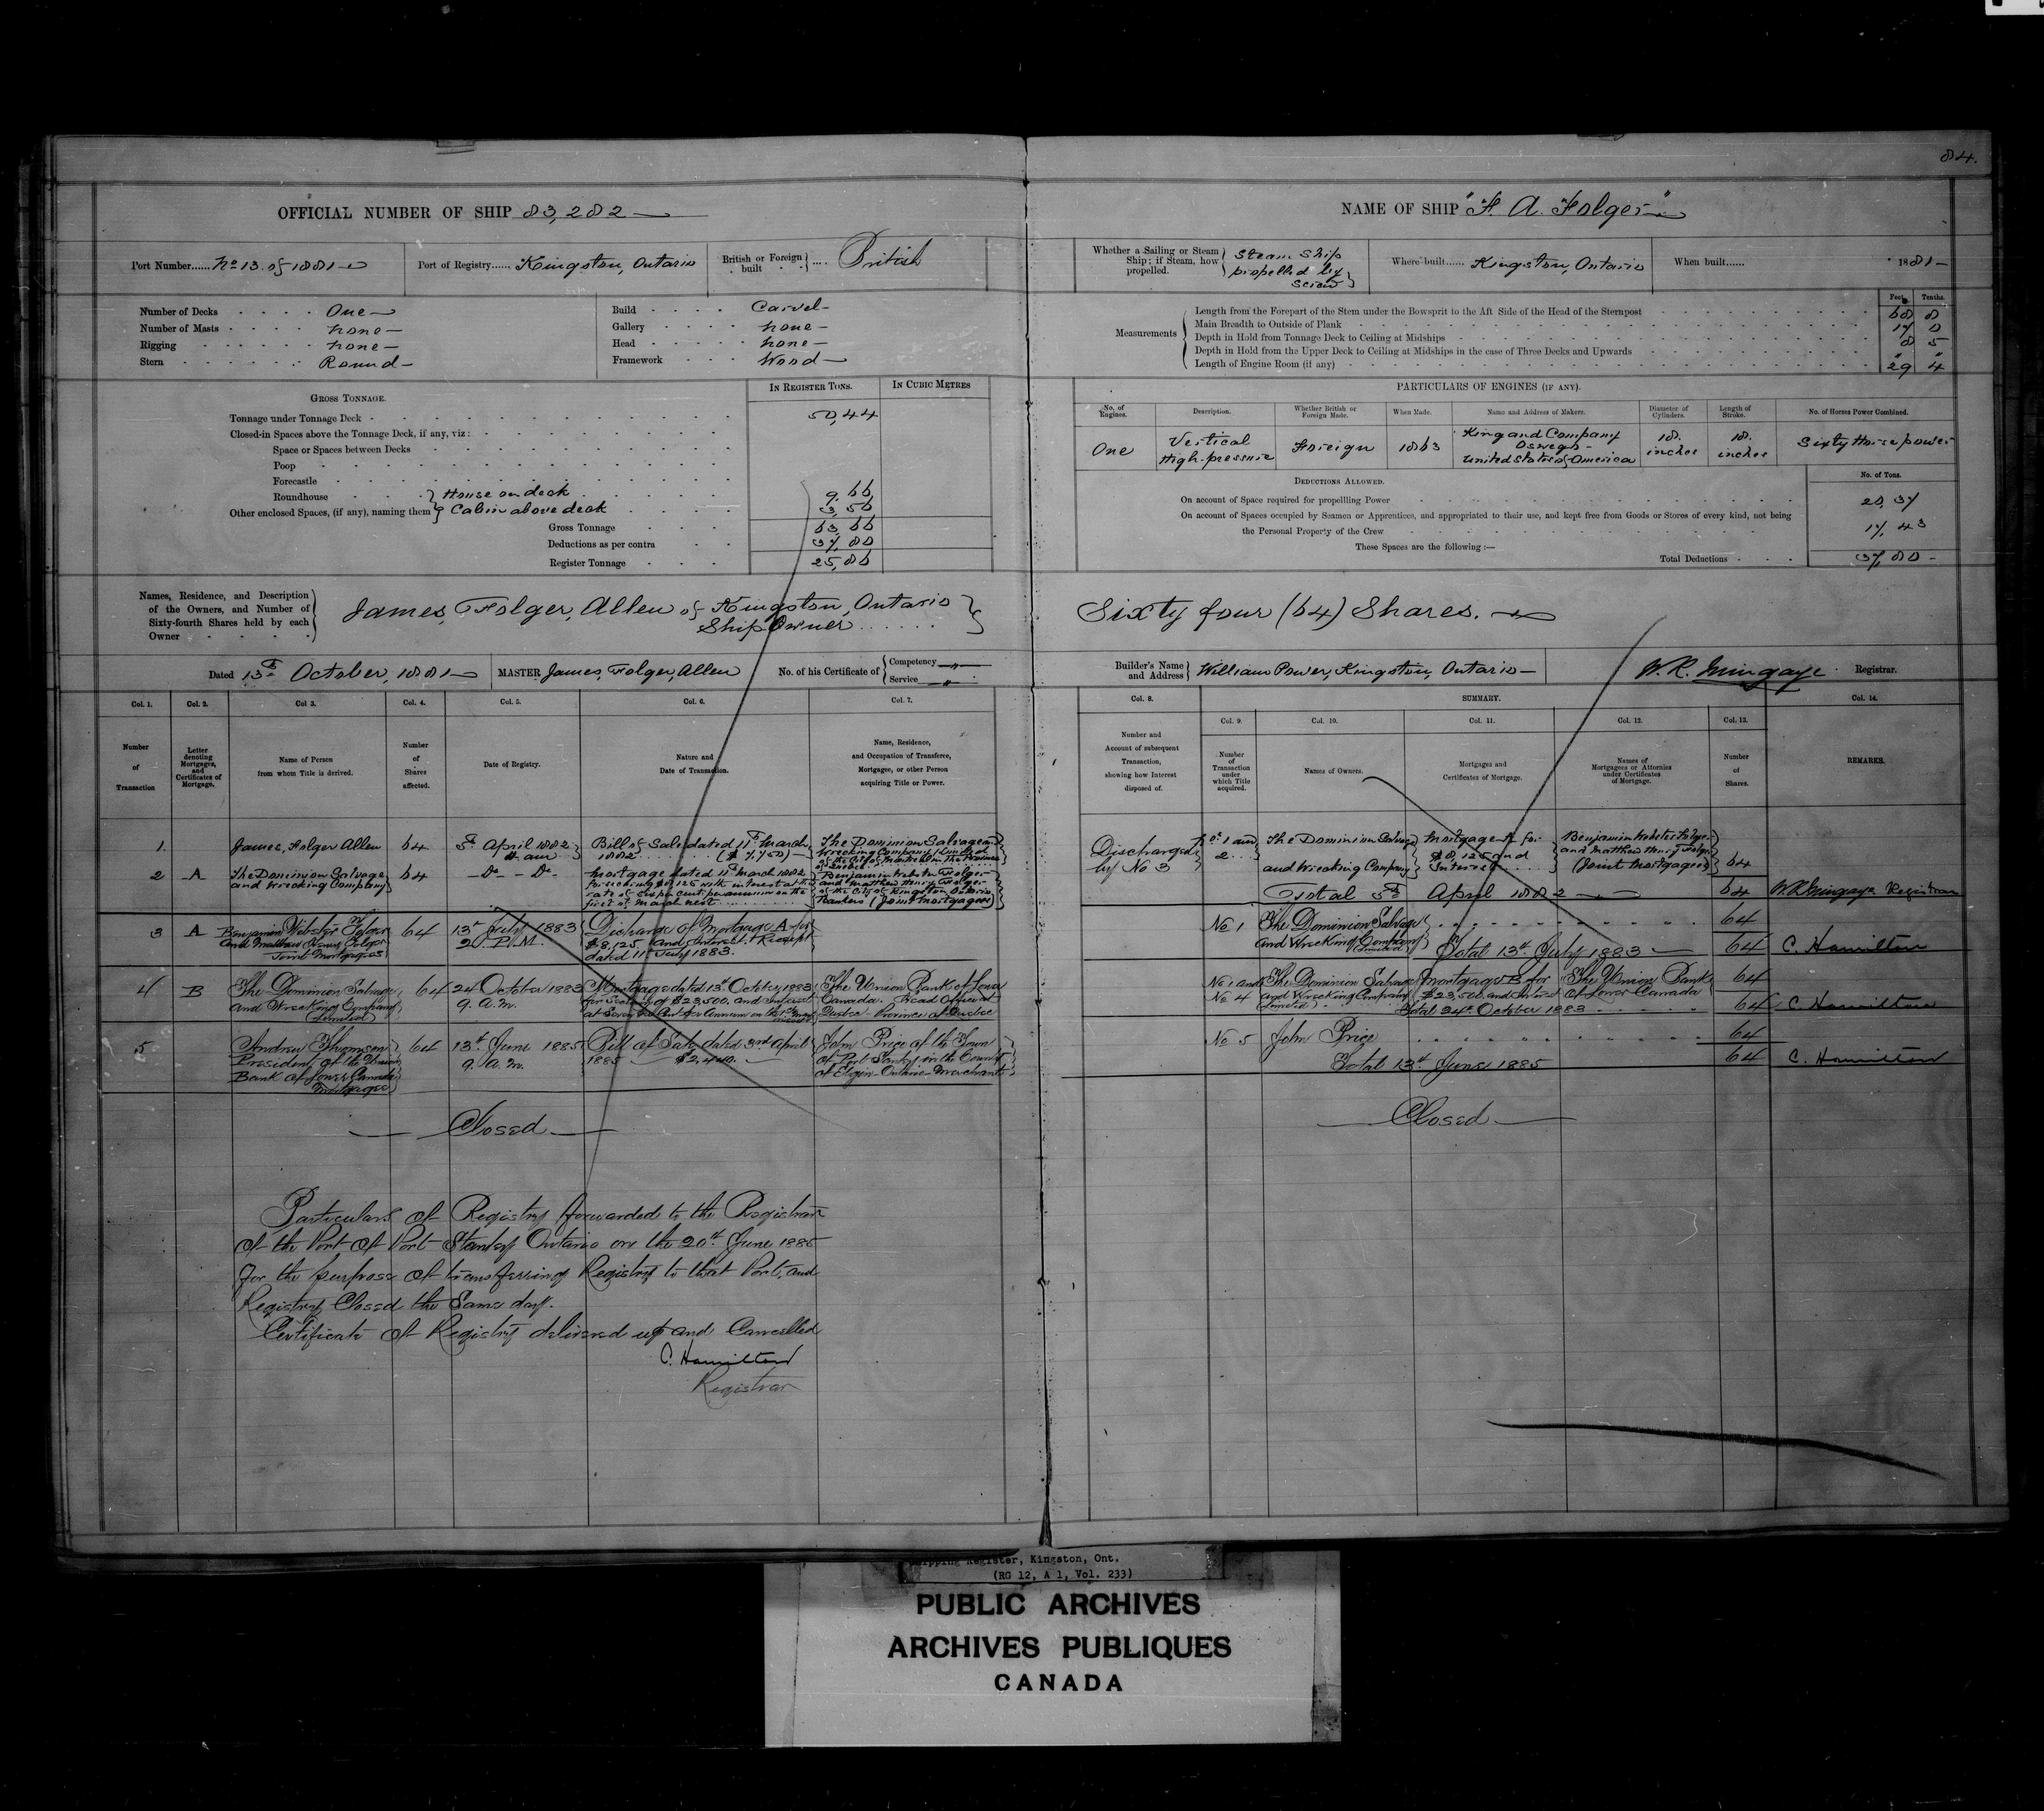 84.
OFFICIAL NUMBER OF SHIP 83,282
Port Number...... No 13. of 1881
Port of Registry...... Kingston, Ontario
British or Foreign built .... British
Number of Decks One
Number of Masts none
Rigging none
Stern Round
Build Carvel
Gallery none
Head none
Framework Wood
GROSS TONNAGE.
IN REGISTER TONS.
IN CUBIC METRES
Tonnage under Tonnage Deck 50,44
Closed-in Spaces above the Tonnage Deck, if any, viz:
Space or Spaces between Decks
Poop
Forecastle
Roundhouse
Other enclosed Spaces, (if any), naming them
House on deck 9.66
Cabin above deck 3,56
Gross Tonnage 63,66
Deductions as per contra 37,80
Register Tonnage 25,86
Names, Residence, and Description
of the Owners, and Number of
Sixty-fourth Shares held by each
Owner
James, Folger, Allen of Kingston, Ontario
Ship Owner
Dated 13th October, 1881
MASTER James, Folger, Allen
No. of his Certificate of
Competency "
Service "
Col. 1.
Col. 2.
Col 3.
Col. 4.
Col. 5.
Col. 6.
Col. 7.
Number
of
Transaction
Letter
denoting
Mortgages,
and
Certificates of
Mortgage.
Name of Person
from whom Title is derived.
Number
of
Shares
affected.
Date of Registry.
Nature and
Date of Transaction.
Name, Residence,
and Occupation of Transferee,
Mortgagee, or other Person
acquiring Title or Power.
1.
James, Folger Allen
64
5th April 1882
Bill of Sale dated 11th March
1882 ($7,750)
The Dominion Salvage and
Wrecking Company Limited
of the City of Montreal in the Province
2
A
The Dominion Salvage
and Wrecking Company
64
Do Do
Mortgage dated 11th March 1882
for securing $8,125 with interest at the
rate of six per cent per annum on the
first of March next
Benjamin Webster Folger
and Matthew Henry Folger
of the City of Kingston Ontario
Bankers (Joint Mortgagees)
3
A
Benjamin Webster Folger
and Matthew Henry Folger
Joint Mortgagees
64
13th July 1883
2 P.M.
Discharge of Mortgage A for
$8,125 and Interest. Receipt
dated 11th July 1883.
4
B
The Dominion Salvage
and Wrecking Company
Limited
64
24 October 1883
9. a.m.
Mortgage dated 13th October 1883
for Security of $23,500. and Interest
at Seven per Cent per Annum
The Union Bank of Lower
Canada. Head Office at
Quebec - Province of Quebec
5
Andrew Thomson
President of the Union
Bank of Lower Canada
Mortgagee
64
13th June 1885
9. a. m.
Bill of Sale dated 3rd April
1885 $2,400.
John Price of the Town
of Port Stanley in the County
of Elgin - Ontario - Merchant
Closed
Particulars of Registry forwarded to the Registrar
of the Port of Port Stanley Ontario on the 20th June 1885
for the purpose of transferring Registry to that Port, and
Registry Closed the Same day.
Certificate of Registry delivered up and Cancelled
C. Hamilton
Registrar
NAME OF SHIP "F. A. Folger"
Whether a Sailing or Steam
Ship; if Steam, how
propelled.
Steam Ship
propelled by
Screw
Where built...... Kingston, Ontario
When built...... 1881
Measurements
Feet. Tenths.
Length from the Forepart of the Stem under the Bowsprit to the Aft Side of the Head of the Sternpost 68 8
Main Breadth to Outside of Plank 17 0
Depth in Hold from Tonnage Deck to Ceiling at Midships 8 5
Depth in Hold from the Upper Deck to Ceiling at Midships in the case of Three Decks and Upwards " "
Length of Engine Room (if any) 29 4
PARTICULARS OF ENGINES (IF ANY).
No. of Engines.
Description.
Whether British or Foreign Made.
When Made.
Name and Address of Makers.
Diameter of Cylinders.
Length of Stroke.
No. of Horses Power Combined.
One
Vertical
High-pressure
Foreign
1863
King and Company
Oswego
United States of America
18.
inches
18.
inches
Sixty Horse power
DEDUCTIONS ALLOWED.
No. of Tons.
On account of Space required for propelling Power 20,37
On account of Spaces occupied by Seamen or Apprentices, and appropriated to their use, and kept free from Goods or Stores of every kind, not being
the Personal Property of the Crew 17,43
These Spaces are the following :—
Total Deductions 37,80
Sixty four (64) Shares.
Builder's Name
and Address
William Power, Kingston, Ontario
W. R. Mingaye Registrar.
Col. 8.
SUMMARY.
Col. 14.
Col. 9.
Col. 10.
Col. 11.
Col. 12.
Col. 13.
Number and
Account of subsequent
Transaction,
showing how Interest
disposed of.
Number
of
Transaction
under
which Title
acquired.
Names of Owners.
Mortgages and
Certificates of Mortgage.
Names of
Mortgagees or Attornies
under Certificates
of Mortgage.
Number
of
Shares.
REMARKS.
Discharged
by No 3
No 1 and
2
The Dominion Salvage
and Wrecking Company
Mortgage A for
$8,125 and
Interest
Benjamin Webster Folger
and Matthew Henry Folger
(Joint Mortgagees)
64
Total 5th April 1882
64
W.R. Mingaye Registrar
No 1
The Dominion Salvage
and Wrecking Company
Limited
64
Total 13th July 1883
64
C. Hamilton
No 1 and
No 4
The Dominion Salvage
and Wrecking Company
Limited
Mortgage B for
$23,500 and Interest
The Union Bank
of Lower Canada
64
Total 24th October 1883
64
C. Hamilton
No 5
John Price
64
Total 13th June 1885
64
C. Hamilton
Closed
Shipping Register, Kingston, Ont.
(RG 12, A 1, Vol. 233)
PUBLIC ARCHIVES
ARCHIVES PUBLIQUES
CANADA